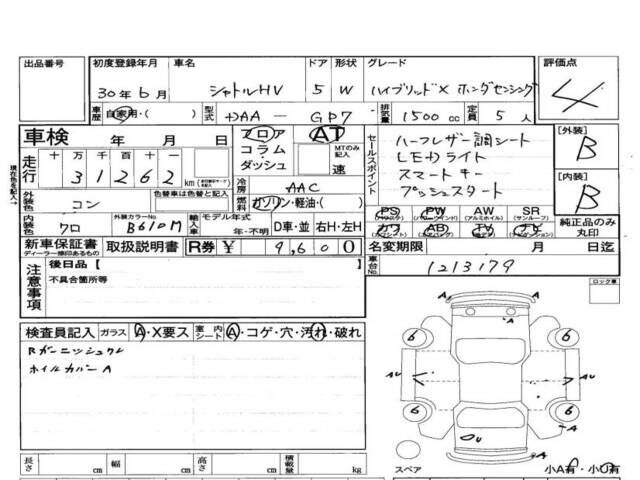 出品番号
初度登録年月
30年6月
車名
シャトルHV
ドア
5
形状
W
グレード
ハイブリッドX ホンダセンシング
評価点
4
車歴
自家用・( )
型式
DAA - GP7
排気量
1500 cc
定員
5 人
車検 年 月 日
フロア
コラム・
ダッシュ
AT
MTのみ記入
速
セールスポイント
ハーフレザー調シート
LEDライト
スマートキー
プッシュスタート
[外装]
B
[内装]
B
走行
十 万 千 百 十 一
3 1 2 6 2
km
冷房
AAC
外装色
コン
色替車は色替と記入
燃料
ガソリン・軽油・( )
PS
PW
AW
SR
(パワステ)
(パワーウインド)
(アルミホイル)
(サンルーフ)
カワ
AB
TV
ナビ
純正品のみ丸印
内装色
クロ
外装カラーNo.
B610M
輸入車
モデル年式
年・不明
D車・並
右H・左H
新車保証書
ディーラー捺印あるもの
取扱説明書
R券 ¥ 9,600
名変期限 月 日迄
注意事項
後日品【
不具合箇所等
車台No.
1213179
ロック車
検査員記入
ガラス
A・X要ス
室内シート
A・コゲ・穴・汚れ・破れ
Rガーニッシュクレ
ホイルカバーA
A
A
AU
AU
6
6
6
6
A
A
スペア
小A有・小U有
長さ cm
幅 cm
高さ cm
積載量 kg
現在色を記入